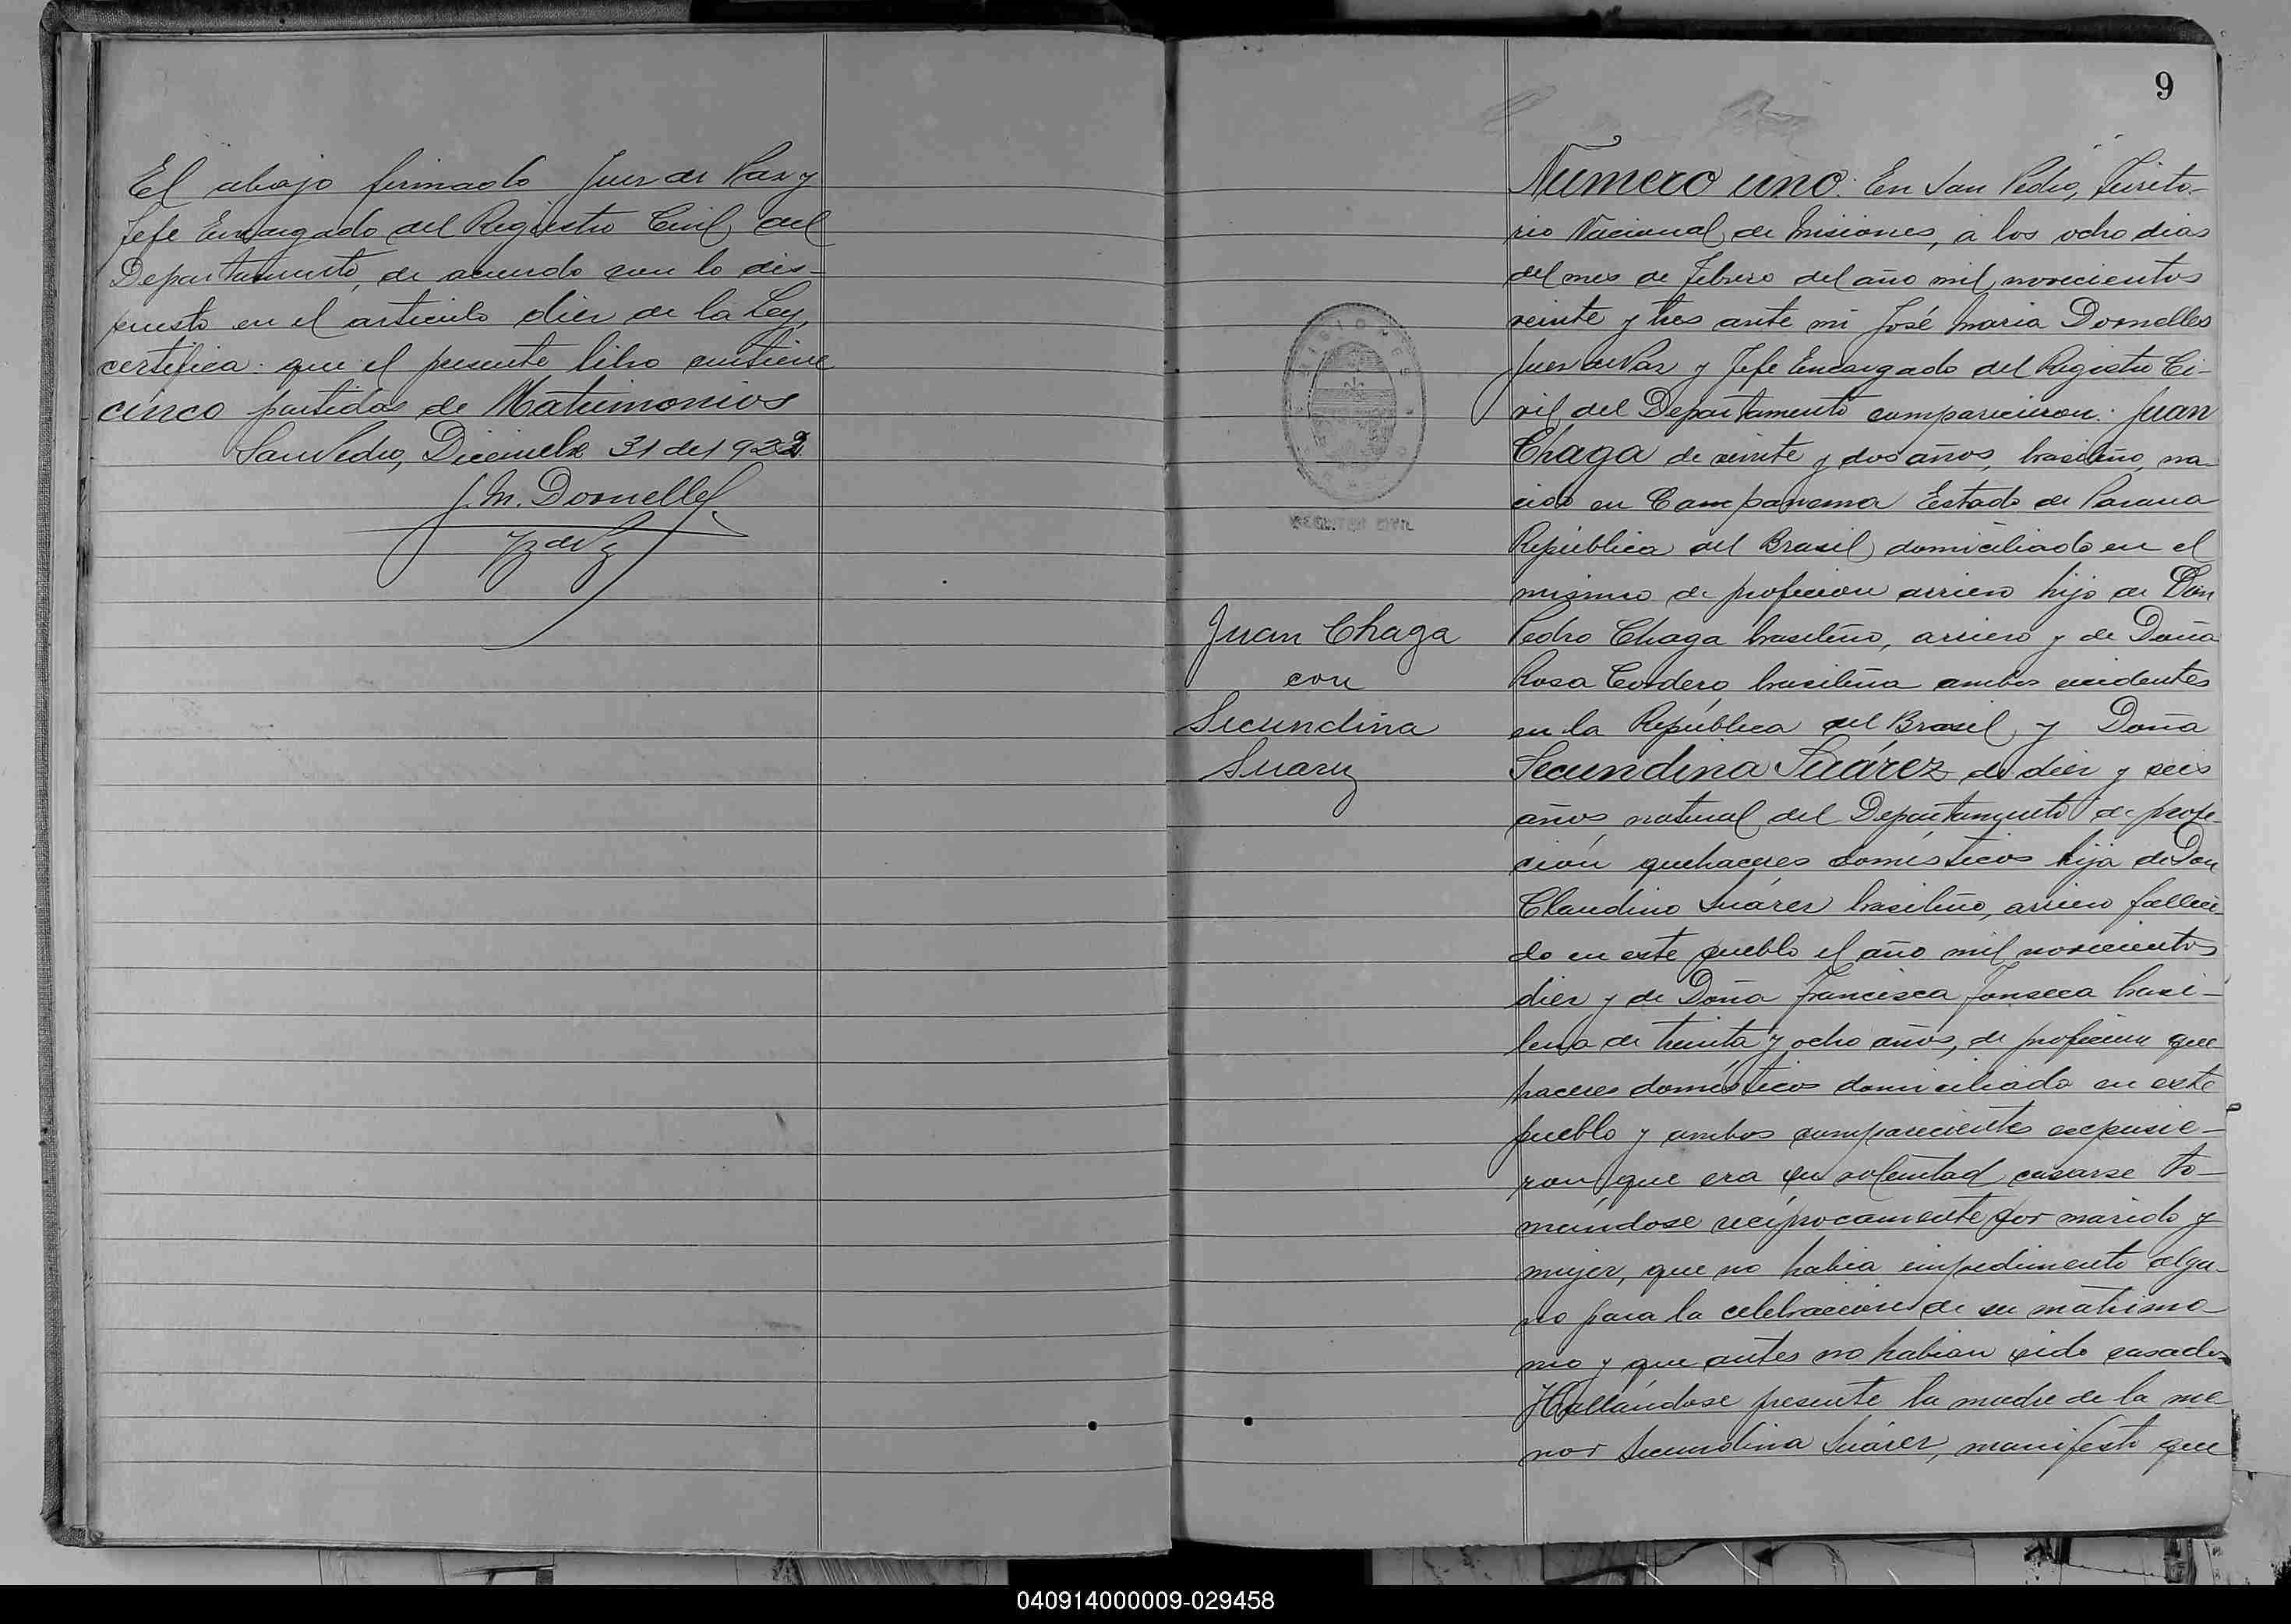 El abajo firmado Juez de Paz y
Jefe Encargado del Registro Civil del
Departamento, de acuerdo con lo dis-
puesto en el articulo diez de la Ley,
certifica: que el presente libro contiene
cinco partidas de Matrimonios
San Pedro, Diciembre 31 de 1922.
J. M. Dornelles
Jz de Pz
9
Número uno. En San Pedro, Territo-
rio Nacional de Misiones, a los ocho dias
del mes de Febrero del año mil novecientos
veinte y tres ante mi José Maria Dornelles
Juez de Paz y Jefe Encargado del Registro Ci-
vil del Departamento comparecieron: Juan
Chaga de veinte y dos años, brasileño, na-
cido en Campanema Estado de Parana
República del Brasil domiciliado en el
mismo de profecion arriero hijo de Don
Pedro Chaga brasileño, arriero y de Doña
Rosa Cordero, brasileña ambos recidentes
en la República del Brasil y Doña
Secundina Suárez de diez y seis
años natural del Departamento de profe-
ción quehaceres domésticos hija de Don
Claudino Suárez brasileño, arriero falleci-
do en este pueblo el año mil novecientos
diez y de Doña Francisca Fonseca brasi-
lena de treinta y ocho años, de profecion que-
haceres domésticos domiciliada en este
pueblo y ambos comparecientes expusie-
ron que era su voluntad casarse to-
mándose recíprocamente por marido y
mujer, que no habia impedimento algu-
no para la celebracion de su matrimo-
nio y que antes no habian sido casados
Hallándose presente la madre de la me-
nor Secundina Suárez, manifestó que
MISIONES
REGISTRO CIVIL
Juan Chaga
con
Secundina
Suarez
040914000009-029458